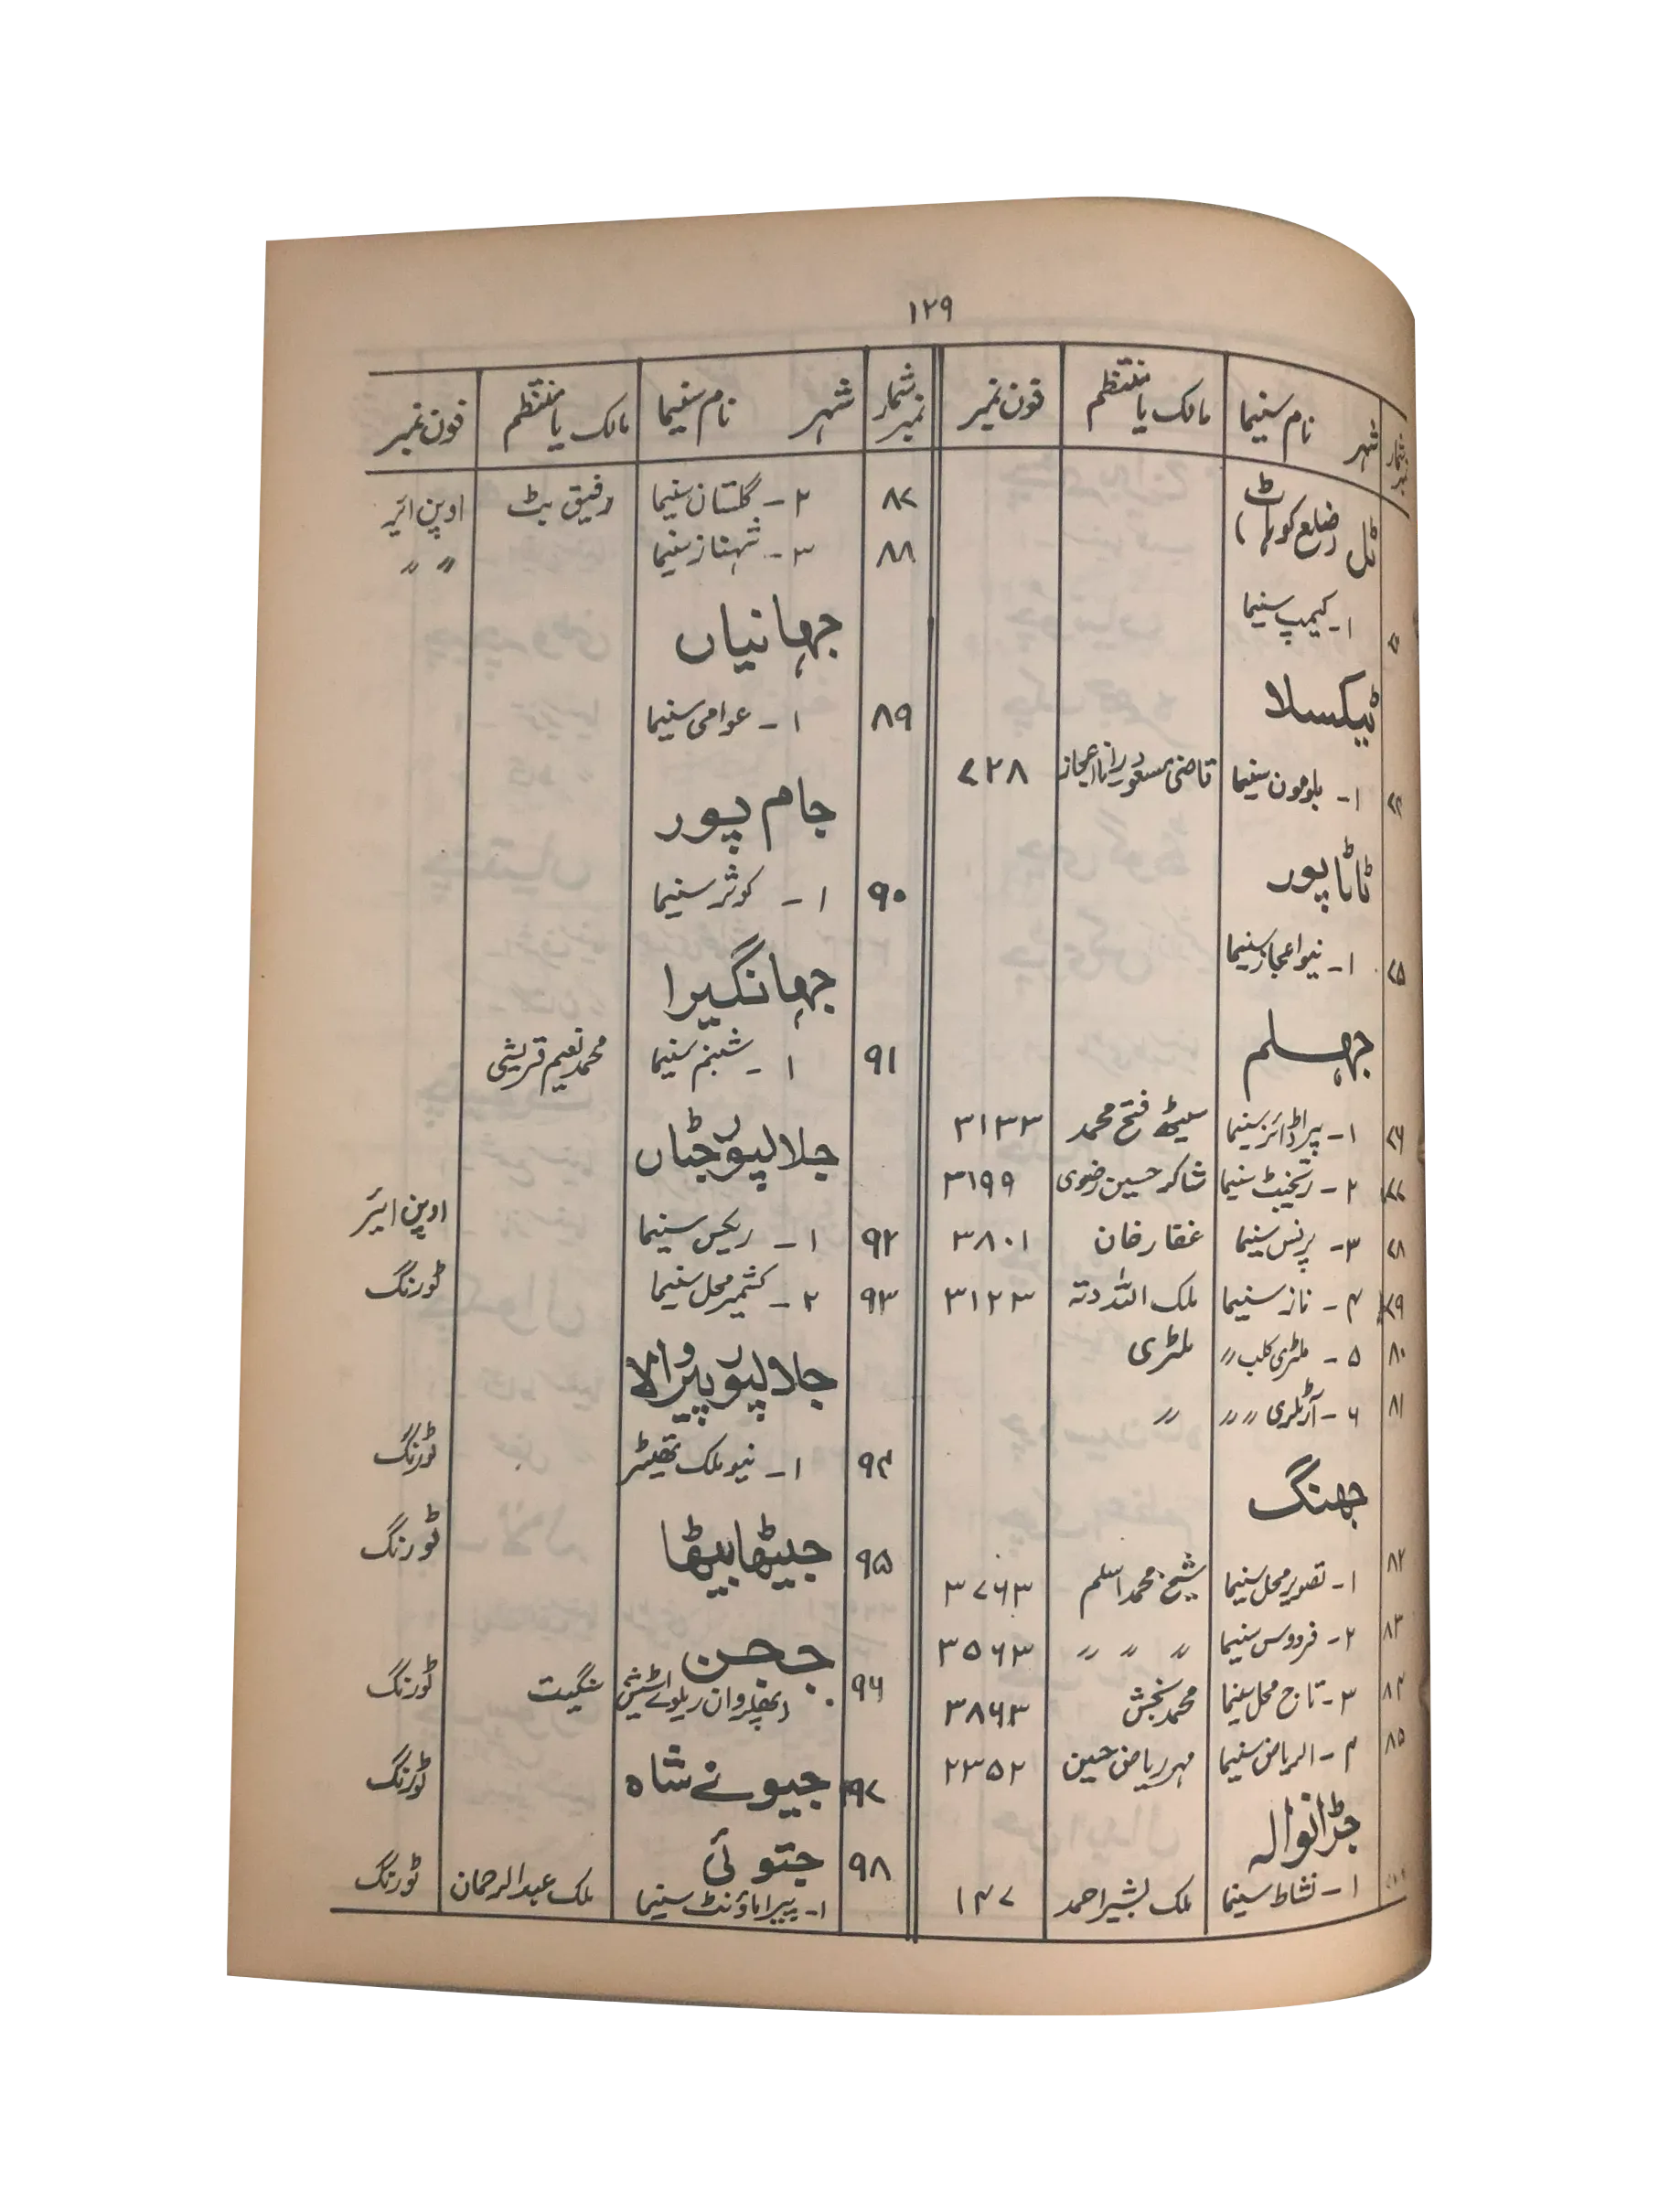 ۱۲۹
شمار نمبر شہر نام سنیما مالک یا منتظم فون نمبر
ٹل (ضلع کوہاٹ)
۱۔ کیمپ سنیما
ٹیکسلا
۱۔ سنیما قاضی مسعود رانا اعجاز ۷۲۸
ٹاٹا پور
۷۵ ۱۔ نیو اعجاز سنیما
جہلم
۷۶ ۱۔ پیراڈائز سنیما سیٹھ فتح محمد ۳۱۳۳
۷۷ ۲۔ ریجنٹ سنیما شاکر حسین رضوی ۳۱۹۹
۷۸ ۳۔ پرنس سنیما غفار خان ۳۸۰۱
۷۹ ۴۔ ناز سنیما ملک اللہ دتہ ۳۱۲۳
۸۰ ۵۔ ملٹری کلب 〃 ملٹری
۸۱ ۶۔ آرٹلری 〃 〃 〃
جھنگ
۸۲ ۱۔ تصویر محل سنیما شیخ محمد اسلم ۳۷۶۳
۸۳ ۲۔ فردوس سنیما 〃 〃 〃 ۳۵۶۳
۸۴ ۳۔ تاج محل سنیما محمد بخش ۳۸۶۳
۸۵ ۴۔ الریاض سنیما مہر ریاض حسین ۲۳۵۲
جڑانوالہ
۱۔ نشاط سنیما ملک بشیر احمد ۱۴۷
شمار نمبر شہر نام سنیما مالک یا منتظم فون نمبر
۸۷ ۲۔ گلستان سنیما رفیق بٹ اوپن ائیر
۸۸ ۳۔ شہناز سنیما 〃 〃
جہانیاں
۸۹ ۱۔ عوامی سنیما
جام پور
۹۰ ۱۔ کوثر سنیما
جہانگیرا
۹۱ ۱۔ شبنم سنیما محمد نعیم قریشی
جلالپور جٹاں
۹۲ ۱۔ ریکس سنیما اوپن ائیر
۹۳ ۲۔ کشمیر محل سنیما ٹورنگ
جلالپور پیروالا
۹۴ ۱۔ نیو ملک تھیٹر ٹورنگ
۹۵ جیٹھا بیٹھا ٹورنگ
ججن
۹۶ ریلوے اسٹیشن سنگیت ٹورنگ
۹۷ جیونے شاہ ٹورنگ
۹۸ جتوئی
۱۔ پیراماؤنٹ سنیما ملک عبدالرحمان ٹورنگ